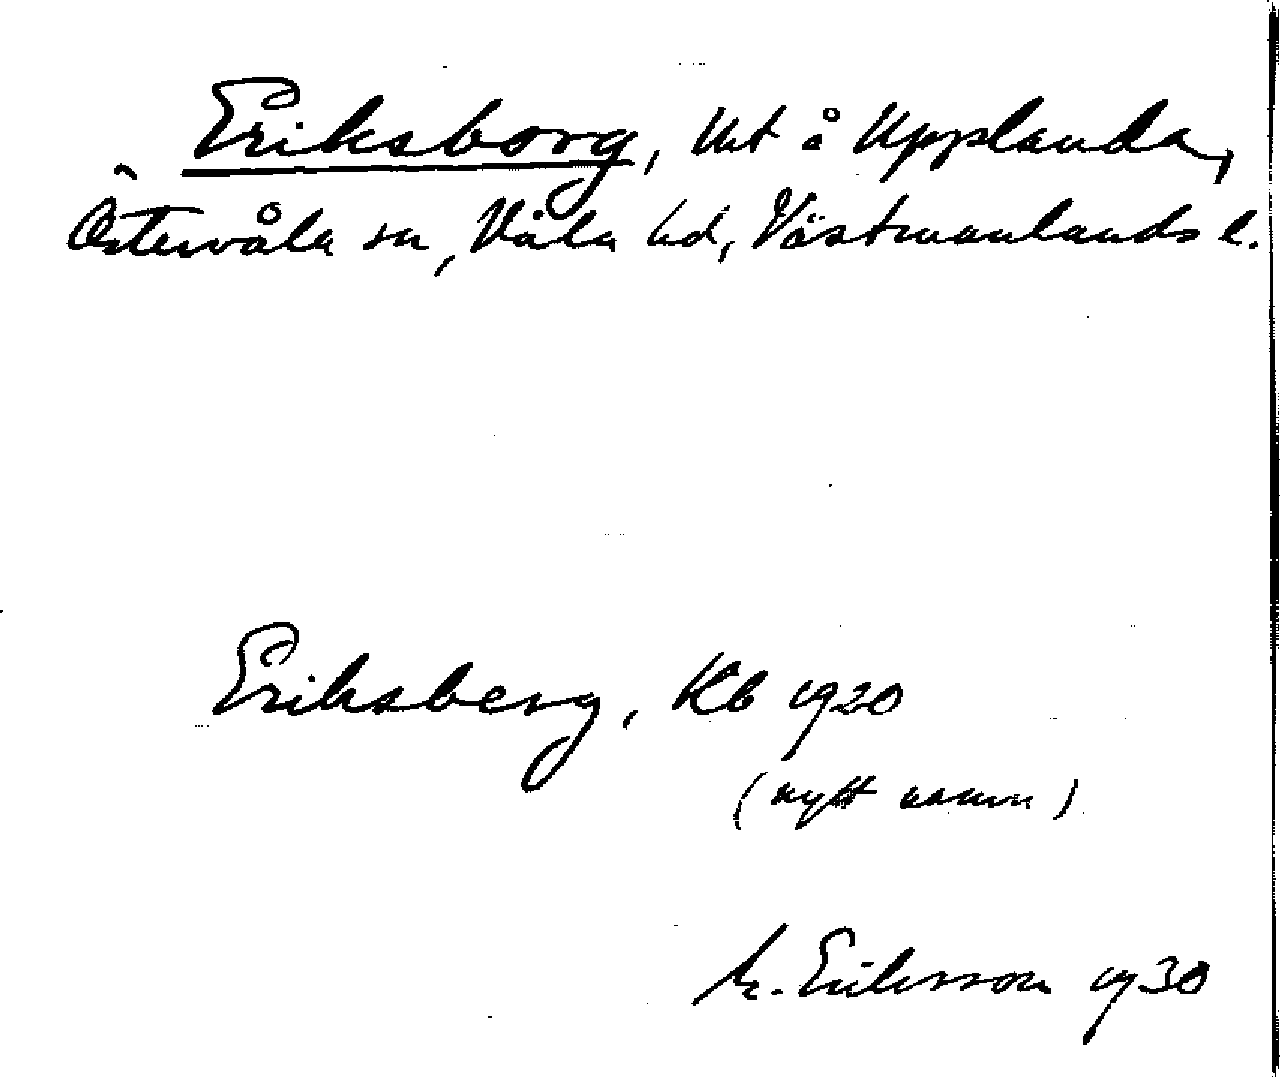 Eriksborg, lht å Upplanda,
Östervåla sn, Våla hd, Västmanlands l.
Eriksberg, Kb 1920
(nytt namn)
M. Eriksson 1930